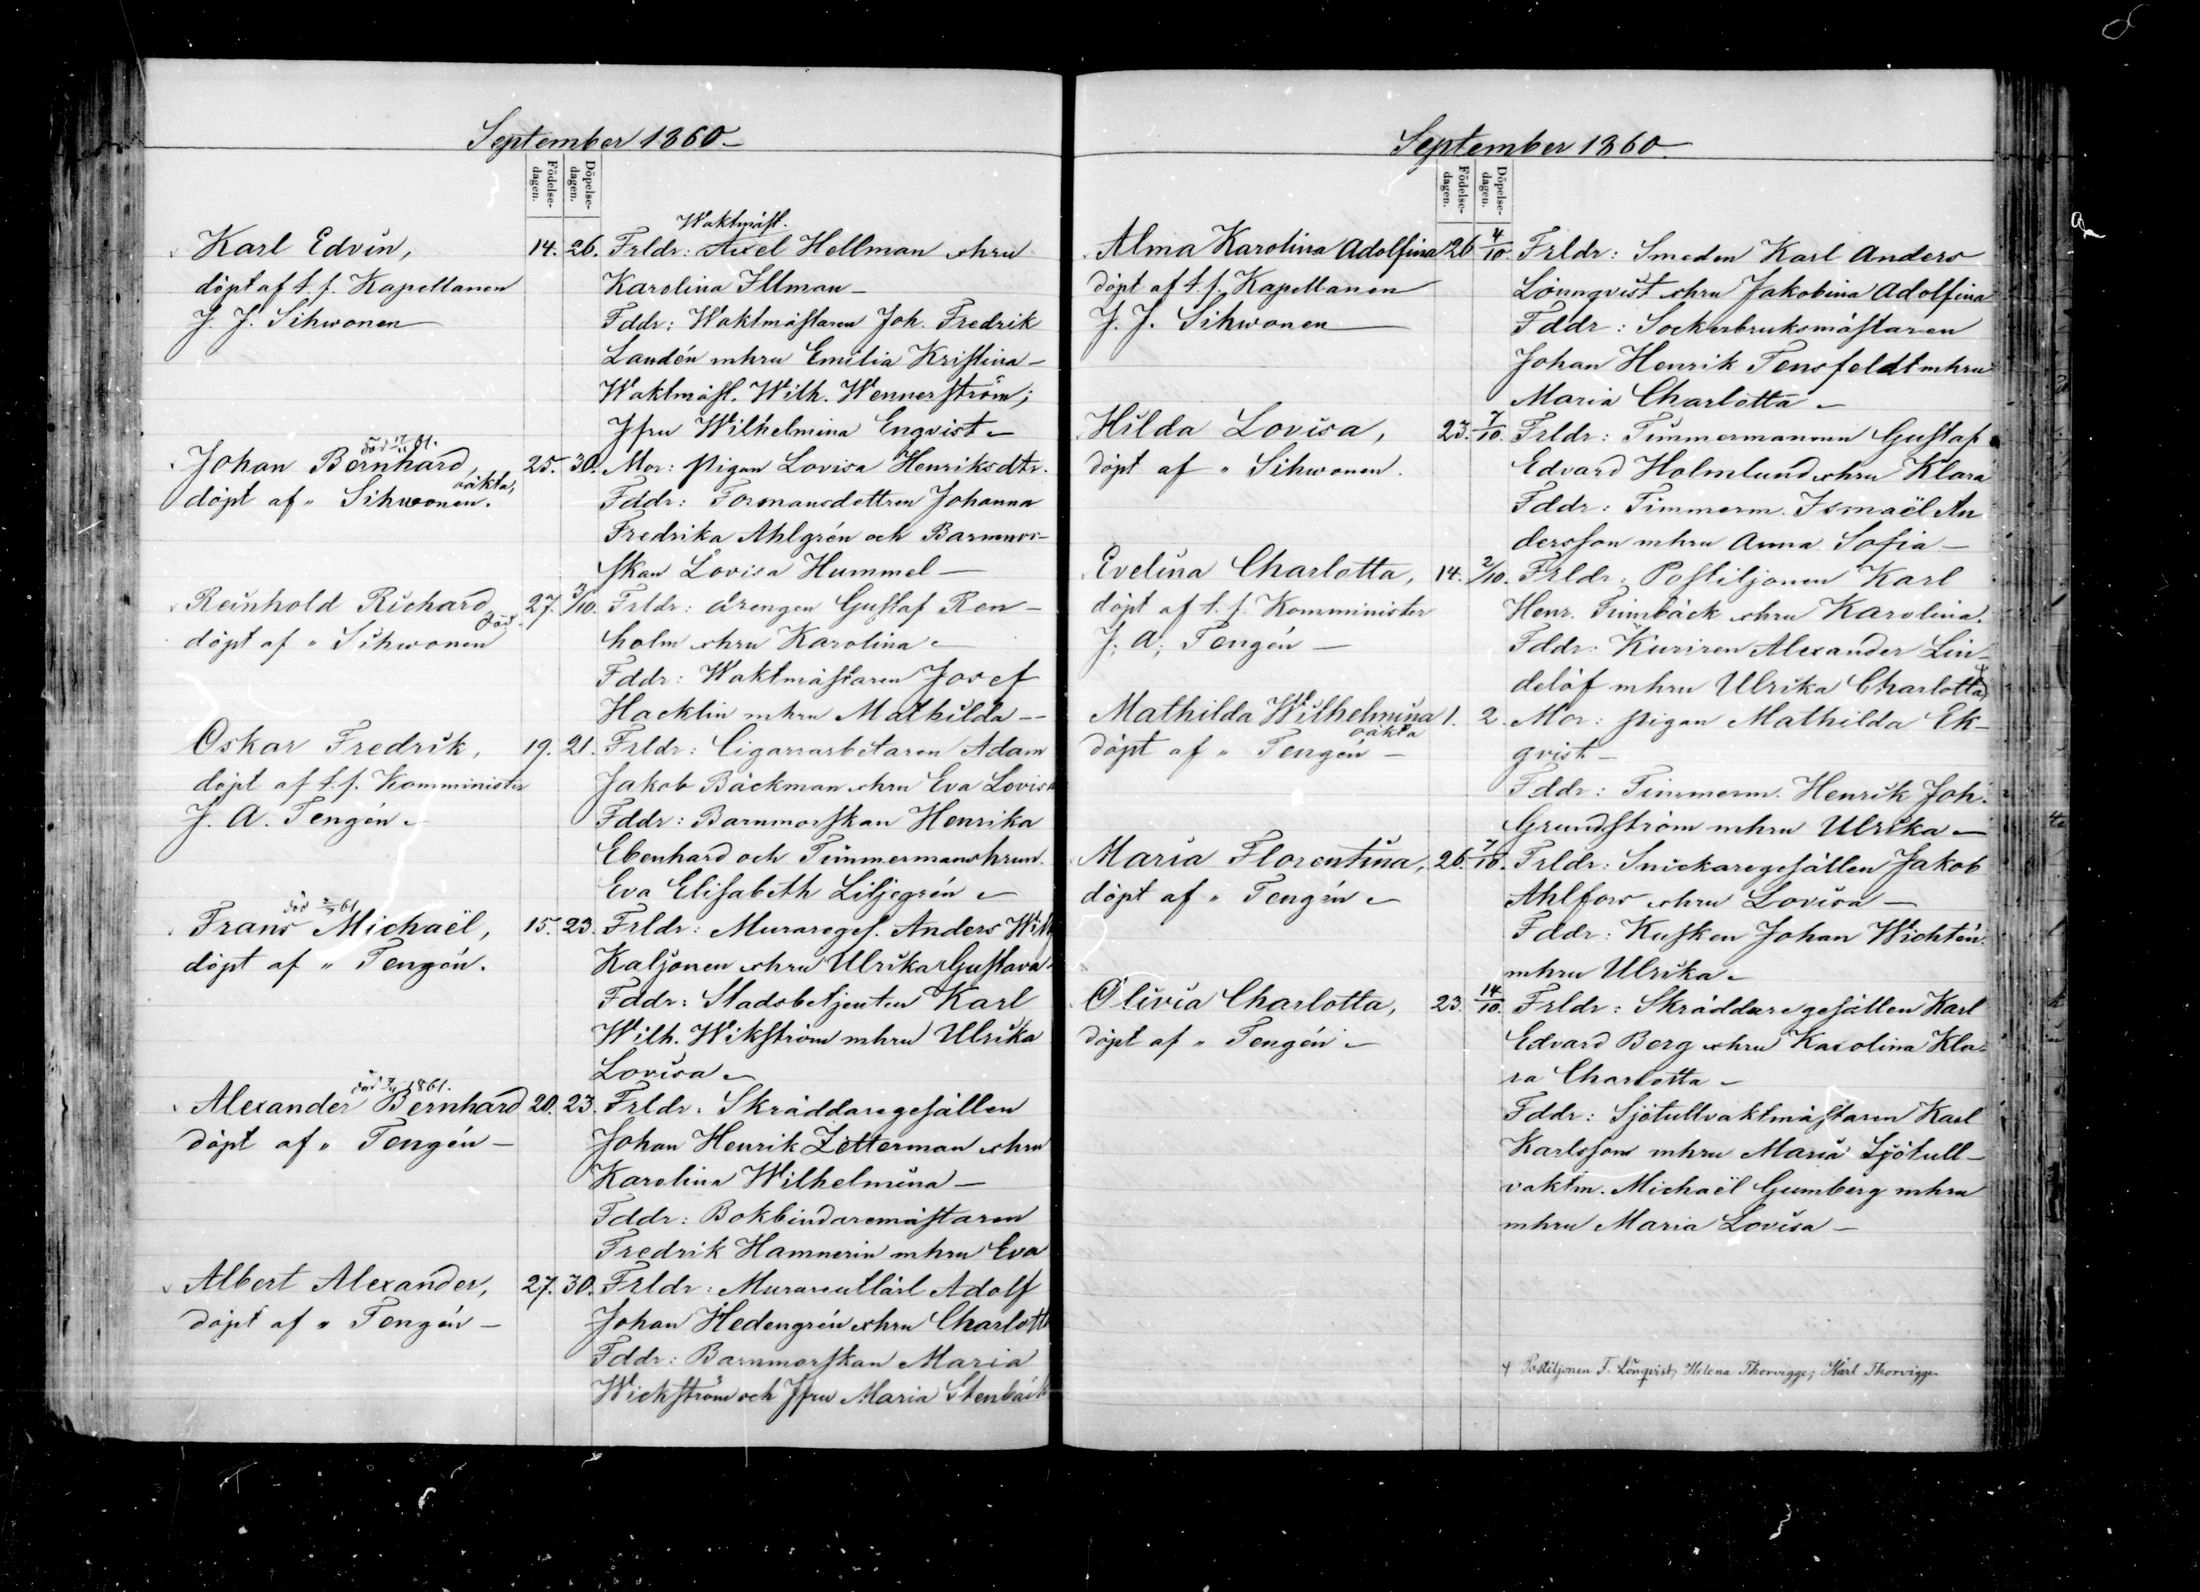 September 1860
Födelse-dagen.
Döpelse-dagen.
Waktmäst.
Karl Edvin, 14. 26. Frldr: Axel Hellman o hru
döpt af t. f. Kapellanen Karolina Illman
J. J. Sihwonen Fddr: Waktmästaren Joh. Fredrik
Landén m hru Emilia Kristina
Waktmäst. Wilh. Wennerström;
Jfru Wilhelmina Enqvist
död 61.
Johan Bernhard, oäkta, 25. 30. Mor: pigan Lovisa Henriksdtr.
döpt af " Sihwonen. Fddr: Formansdottren Johanna
Fredrika Ahlgrén och Barnmor-
skan Lovisa Hummel
Reinhold Richard död 27. 3/10. Frldr: drengen Gustaf Ren-
döpt af " Sihwonen holm o hru Karolina
Fddr: Waktmästaren Josef
Hacklin m hru Mathilda
Oskar Fredrik, 19. 21. Frldr: Cigarrarbetaren Adam
döpt af t. f. Komminister Jakob Bäckman o hru Eva Lovisa
J. A. Tengén Fddr: Barnmorskan Henrika
Ebenhard och Timmermanshrun
Eva Elisabeth Liljegrén
död 61
Frans Michaël, 15. 23. Frldr: Murareges. Anders Wilh
döpt af " Tengén. Kaljonen o hru Ulrika Gustava
Fddr: Stadsbetjenten Karl
Wilh. Wikström m hru Ulrika
Lovisa
död 1861.
Alexander Bernhard 20. 23. Frldr. Skräddaregesällen
döpt af " Tengén Johan Henrik Zetterman o hru
Karolina Wilhelmina
Fddr: Bokbindaremästaren
Fredrik Hamnerin m hru Eva
Albert Alexander, 27. 30. Frldr: Murareutlärl Adolf
döpt af " Tengén Johan Hedengrén o hru Charlott
Fddr: Barnmorskan Maria
Wickström och Jfru Maria Stenbäck
September 1860.
Födelse-dagen.
Döpelse-dagen.
Alma Karolina Adolfina 26 4/10 Frldr: Smeden Karl Anders
döpt af t. f. Kapellanen Lönnqvist o hru Jakobina Adolfina
J. J. Sihwonen Fddr: Sockerbruksmästaren
Johan Henrik Tensfeldt m hru
Maria Charlotta
Hilda Lovisa, 23. 7/10. Frldr: Timmermannen Gustaf
döpt af " Sihwonen. Edvard Holmlund o hru Klara
Fddr: Timmerm. Ismaël An
dersson m hru Anna Sofia
Evelina Charlotta, 14. 2/10. Frldr: Postiljonen Karl
döpt af t. f. Komminister Henr. Finnbäck o hru Karolina.
J. A. Tengén Fddr: Kuriren Alexander Lin-
delöf m hru Ulrika Charlotta
Mathilda Wilhelmina oäkta 1. 2. Mor: pigan Mathilda Ek-
döpt af " Tengén qvist
Fddr: Timmerm. Henrik Joh.
Grundström m hru Ulrika
Maria Florentina, 26. 7/10. Frldr: Snickaregesällen Jakob
döpt af " Tengén Ahlfors o hru Lovisa
Fddr: Kusken Johan Wichtén
m hru Ulrika
Olivia Charlotta, 23. 14/10. Frldr: Skräddaregesällen Karl
döpt af " Tengén Edvard Berg o hru Karolina Kla-
ra Charlotta
Fddr: Sjötullvaktmästaren Karl
Karlsson m hru Maria Sjötull-
vaktm. Michaël Gumberg m hru
m hru Maria Lovisa
Postiljonen F. Lönqvist, Helena Thorvigge, Karl Thorvigge